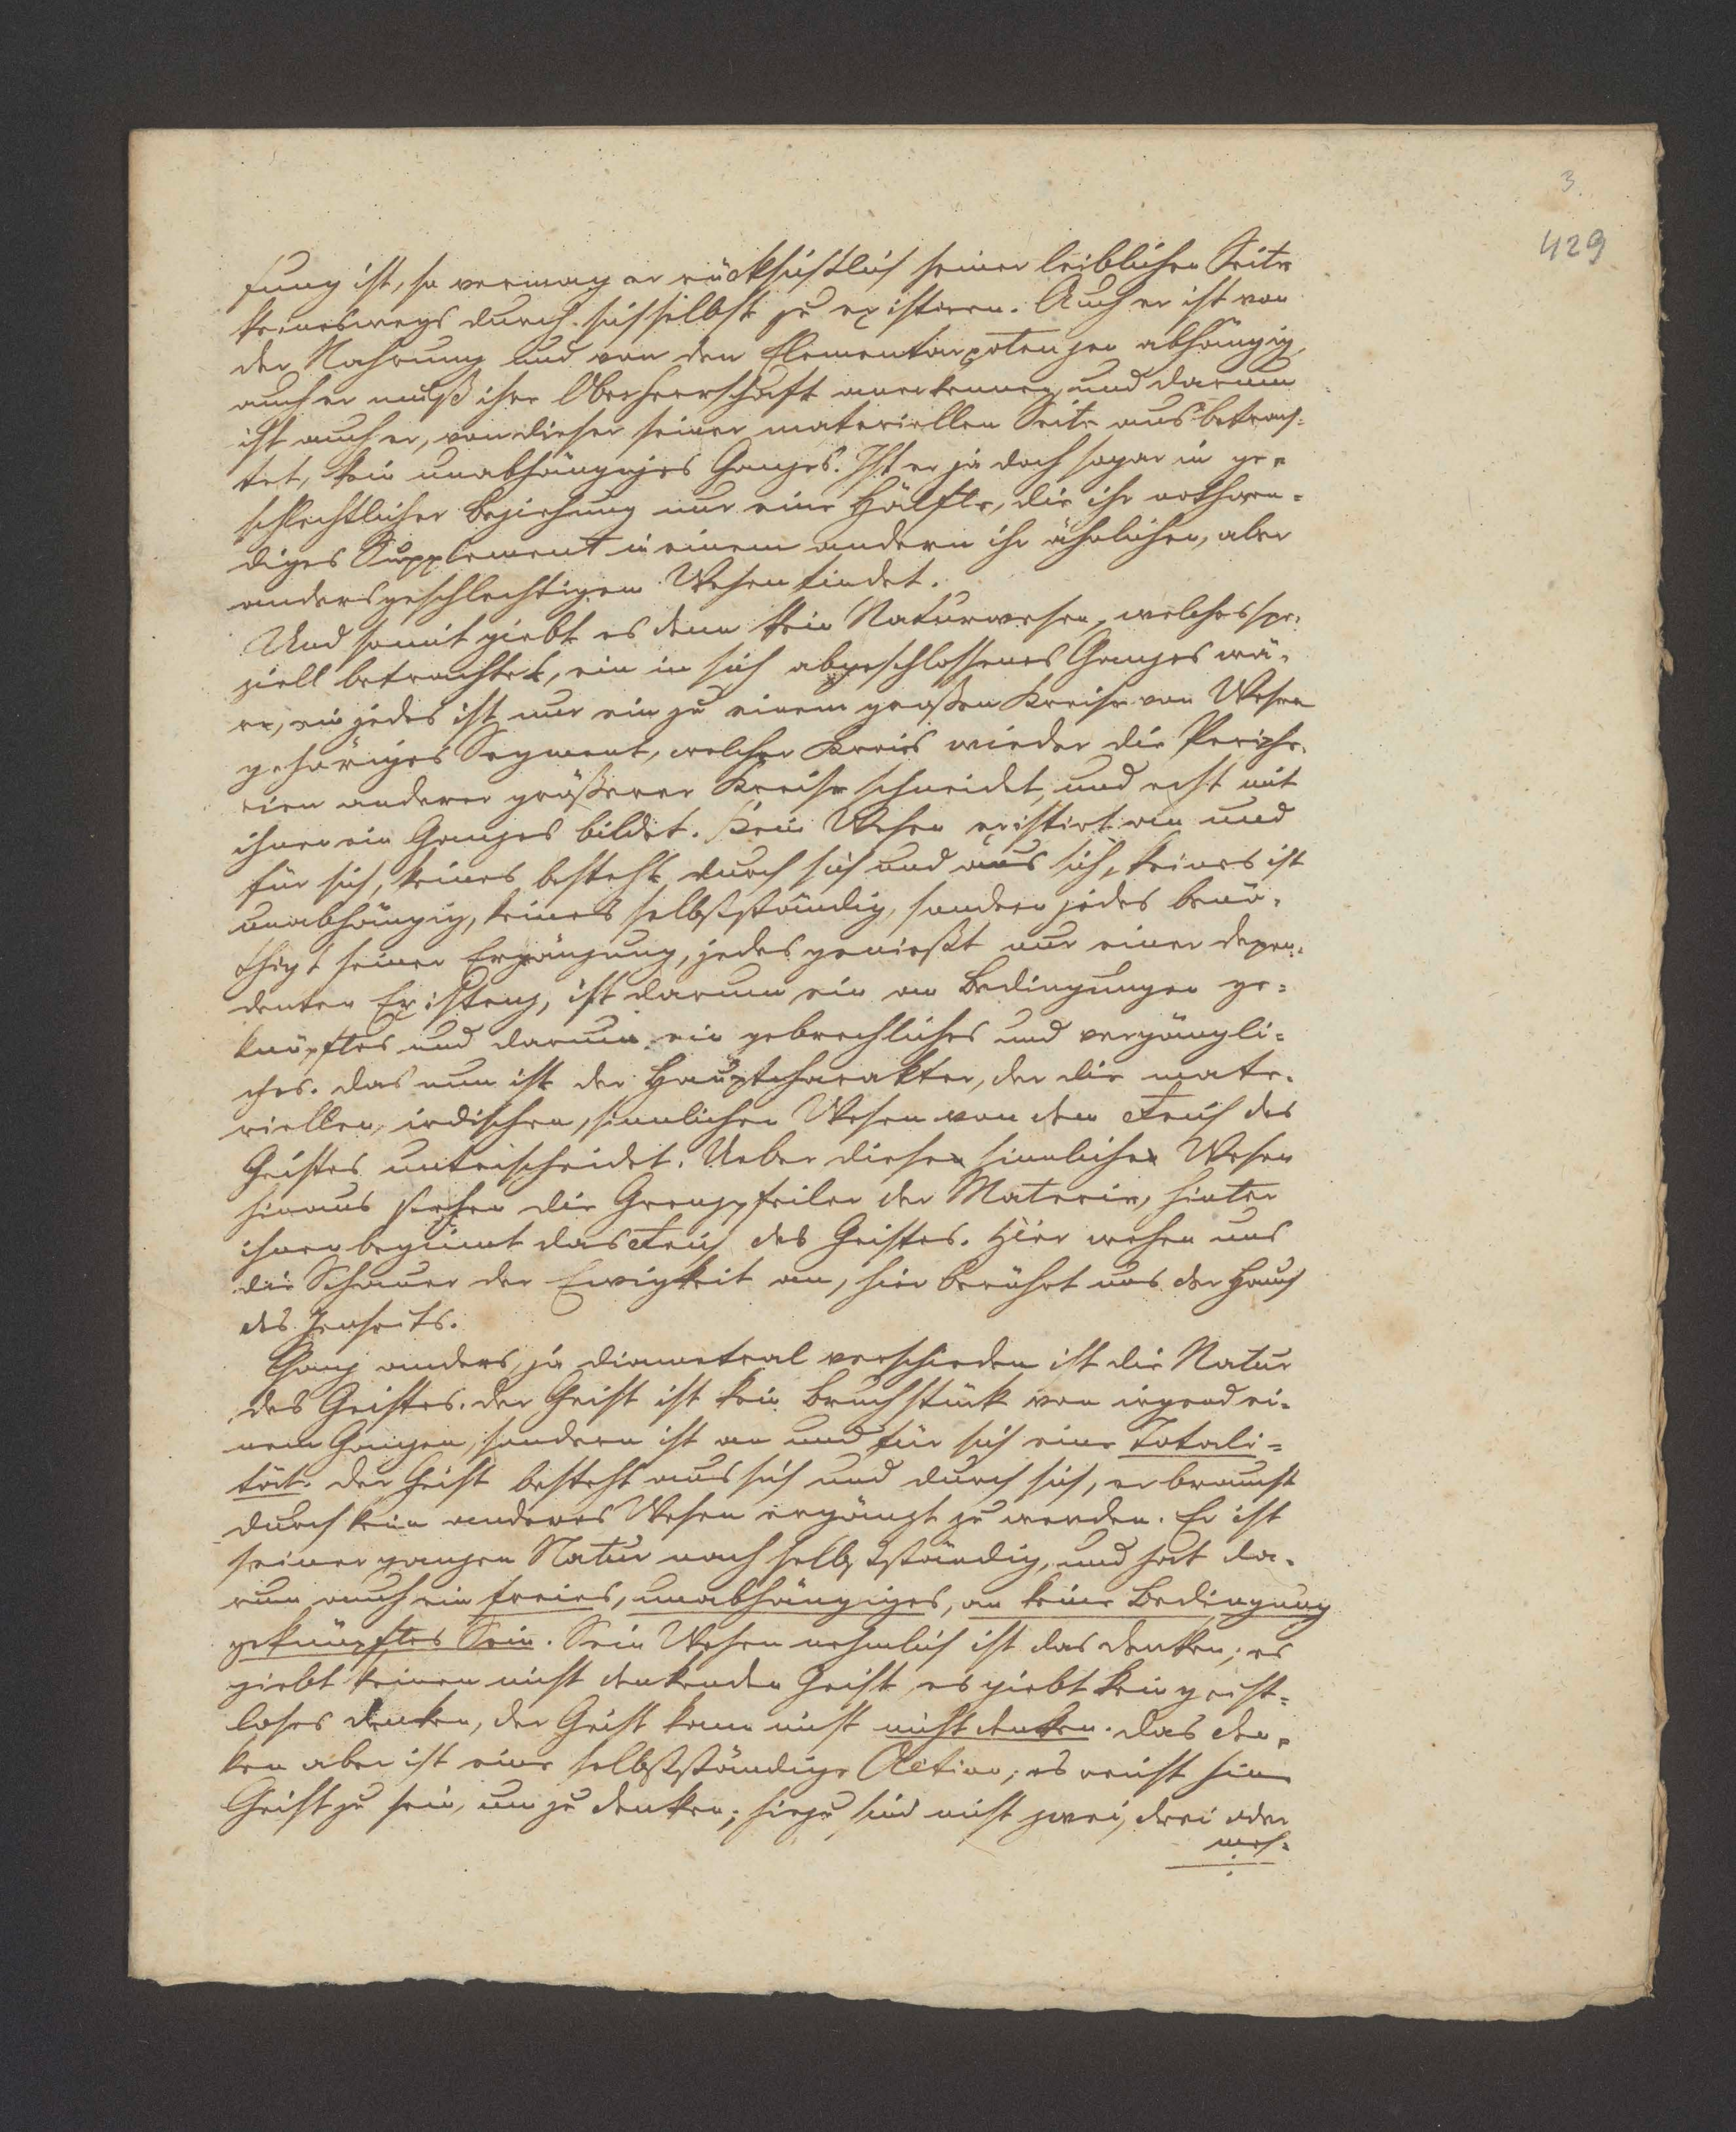 3.
429
fung ist, so vermag er rücksichtlich seiner leiblichen Seite
keineswegs durch sich selbst zu existiren. Auch er ist von
der Nahrung und von den Elementarpotenzen abhängig,
auch er muß ihre Oberherrschaft anerkennen, und darum
ist auch er, von dieser seiner materiellen Seite aus betrach-
tet, kein unabhängiges Ganzes. Ist er ja doch sogar in ge-
schlechtlicher Beziehung nur eine Hälfte, die ihr nothwen-
diges Supplement in einem andern ihr ähnlichen, aber
andersgeschlechtigen Wesen findet.
Und somit giebt es denn kein Naturwesen, welches spe-
ziell betrachtet, ein in sich abgeschlossenes Ganzes wä-
re, ein jedes ist nur ein zu einem großen Kreise von Wesen
gehöriges Segment, welcher Kreis wieder die Periphe-
rien anderer größerer Kreise schneidet, und erst mit
ihnen ein Ganzes bildet. Kein Wesen existirt an und
für sich, keines besteht durch sich und aus sich, keines ist
unabhängig, keines selbstständig, sondern jedes benö-
thigt seiner Ergänzung, jedes genießt nur einer depen-
denten Existenz, ist darum ein an Bedingungen ge-
knüpftes und darum ein gebrechliches und vergängli-
ches. Das nun ist der Hauptcharakter, der die mate-
riellen, irdischen, sinnlichen Wesen von dem Reich des
Geistes unterscheidet. Ueber diese sinnliche Wesen
hinaus stehen die Grenzpfeiler der Materie, hinter
ihnen beginnt das Reich des Geistes. Hier wehen uns
die Schauer der Ewigkeit an, hier berührt uns der Hauch
des Jenseits.
Ganz anders, ja diametral verschieden ist die Natur
des Geistes. Der Geist ist kein Bruchstück von irgend ei-
nem Ganzen, sondern ist an und für sich eine Totali-
tät. Der Geist besteht aus sich und durch sich, er braucht
durch kein anderes Wesen ergänzt zu werden. Er ist
seiner ganzen Natur nach selbstständig, und hat da-
rum auch ein freies, unabhängiges, an keine Bedingung
geknüpftes Sein. Sein Wesen nehmlich ist das Denken; es
giebt keinen nicht denkenden Geist, es giebt kein geist-
loses Denken, der Geist kann nicht nicht denken. Das Den-
ken aber ist eine selbstständige Aktion; es reicht hin
Geist zu sein, um zu denken; hiezu sind nicht zwei, drei oder
meh-